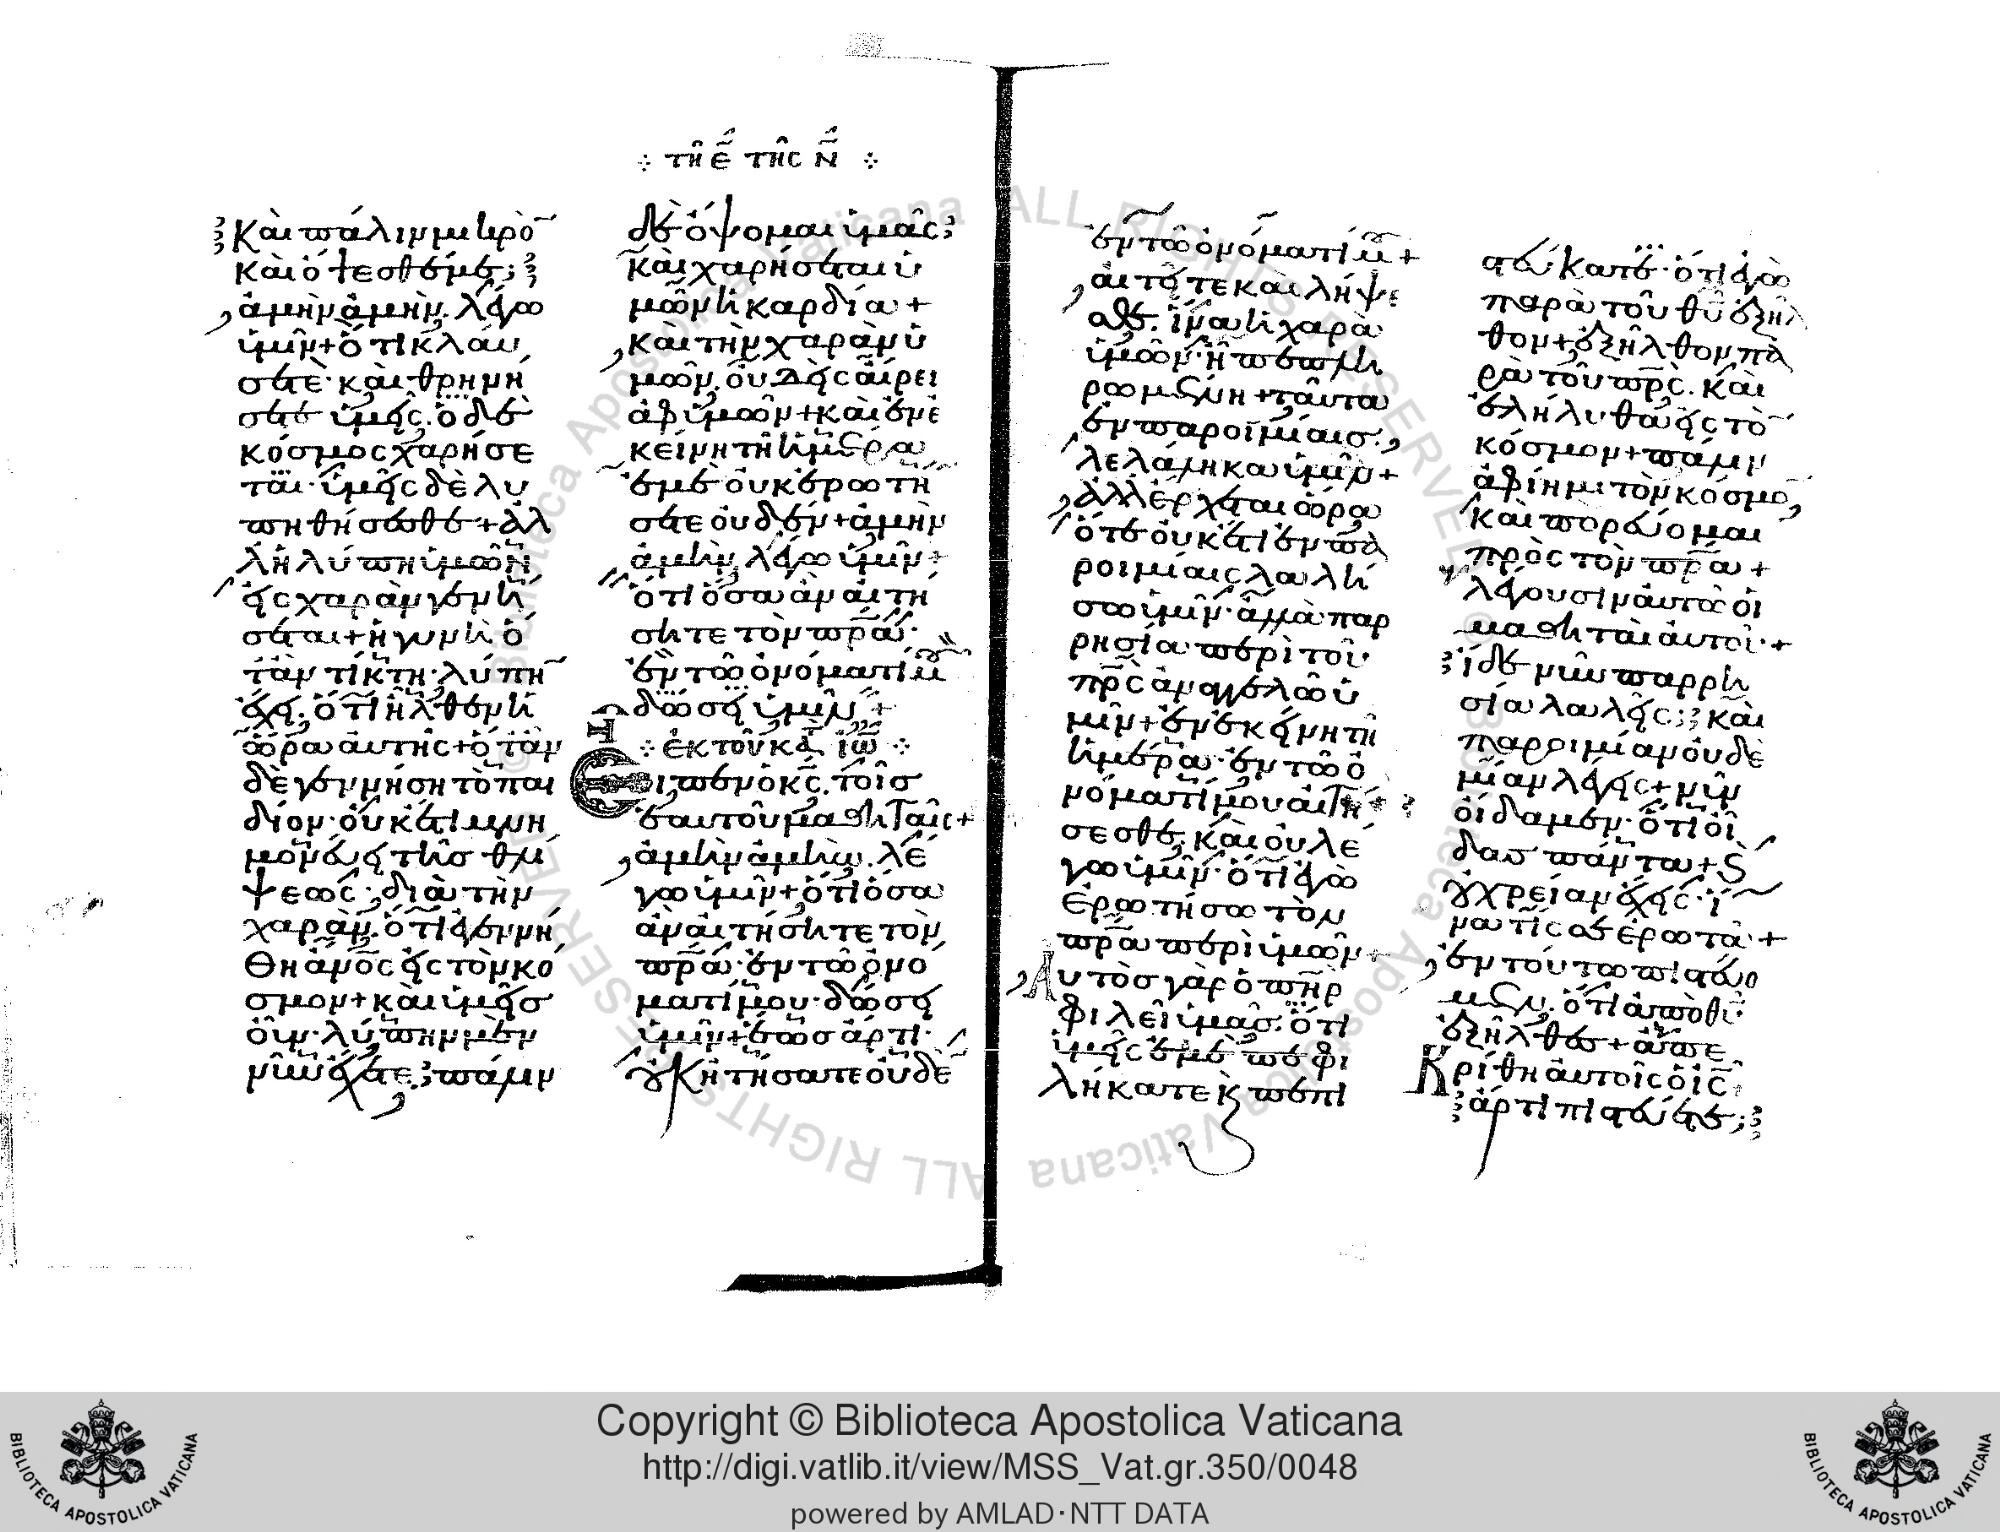 τῆ ε̄ τῆς ν̄
Καὶ πάλιν μικρὸ
καὶ ὄψεσθέ με;
ἀμὴν ἀμὴν λέγω
ὑμῖν + ὅτι κλαύ
σετε καὶ θρηνή
σετε ὑμεῖς. ὁ δὲ
κόσμος χαρήσε
ται· ὑμεῖς δὲ λυ
πηθήσεσθε + ἀλ
λ' ἡ λύπη ὑμῶν
εἰς χαρὰν γενή
σεται + ἡ γυνὴ ὅ
τὰν τίκτη· λύπη
ἔχει, ὅτι ἦλθεν ἡ
ὥρα αὐτῆς + ὅταν
δὲ γεννήση τὸ παι
δίον· οὐκέτι μνη
μονεύει τῆς θλί
ψεως· διὰ τὴν
χαράν. ὅτι ἐγεννή
θη ἄνος εἰς τὸν κό
σμον + καὶ ὑμεῖς
οὖν· λύπην μὲν
νῦν ἔχετε. πάλιν
δὲ ὄψομαι ὑμᾶς;
καὶ χαρήσεται ὑ
μῶν ἡ καρδία +
καὶ τὴν χαρὰν ὑ
μῶν. οὐδεὶς αἴρει
ἀφ' ὑμῶν + καὶ ἐν ἐ
κείνη τῆ ἡμέρα
ἐμὲ οὐκ ἐρωτή
σετε οὐδέν + ἀμὴν
ἀμὴν λέγω ὑμῖν +
ὅτι ὅσα ἂν αἰτή
σητε τὸν πρ̄α·
ἐν τῶ ὀνόματί μ
δώσει ὑμῖν +
ἐκ τοῦ κα ιω
Εἶπεν ὁ κς. τοῖς
ἑαυτοῦ μαθηταῖς +
ἀμὴν ἀμὴν. λέ
γω ὑμῖν + ὅτι ὅσα
ἂν αἰτήσητε τὸν
πρ̄α· ἐν τῶ ὀνό
ματί μου· δώσει
ὑμῖν + ἕως ἄρτι·
οὐκ ἠτήσατε οὐδὲ
ἐν τῶ ὀνόματί μ +
αἰτεῖτε καὶ λήψε
σθε. ἵνα ἡ χαρὰ
ὑμῶν· ἦ πεπλη
ρωμένη + ταῦτα
ἐν παροιμίαις
λελάληκα ὑμῖν +
ἀλλ' ἔρχεται ὥρα
ὅτε οὐκέτι ἐν πα
ροιμίαις λαλή
σω ὑμῖν· ἀλλὰ παρ
ρησία περὶ τοῦ
πρ̄ς ἀναγγελῶ ὑ
μῖν + ἐν ἐκείνη τῆ
ἡμέρα· ἐν τῶ ὀ
νόματί μου αἰτή
σεσθε. καὶ οὐ λέ
γω ὑμῖν· ὅτι ἐγὼ
ἐρωτήσω τὸν
πρ̄α περὶ ὑμῶν +
Αὐτὸς γὰρ ὁ πη̄ρ
φιλεῖ ὑμᾶς. ὅτι
ὑμεῖς ἐμὲ πεφι
λήκατε κ πεπι
στεύκατε· ὅτι ἐγὼ
παρὰ τοῦ θῡ ἐξῆλ
θον + ἐξῆλθον πα
ρὰ τοῦ πρ̄ς. καὶ
ἐλήλυθα εἰς τὸ
κόσμον + πάλιν
ἀφίημι τὸν κόσμο
καὶ πορεύομαι
πρὸς τὸν πρ̄α +
λέγουσιν αὐτῶ οἱ
μαθηταὶ αὐτοῦ· +
ἴδε νῦν παρρη
σία λαλεῖς; καὶ
παροιμίαν οὐδὲ
μίαν λέγεις + νῦν
οἴδαμεν· ὅτι οἶ
δας πάντα + κ
οὐ χρείαν ἔχεις· ἵ
να τίς σε ἐρωτᾶ +
ἐν τούτω πιστεύο
μεν. ὅτι ἀπὸ θῡ
ἐξῆλθες + ἀπε
Κρίθη αὐτοῖς ὁ ις
ἄρτι πιστεύετε;